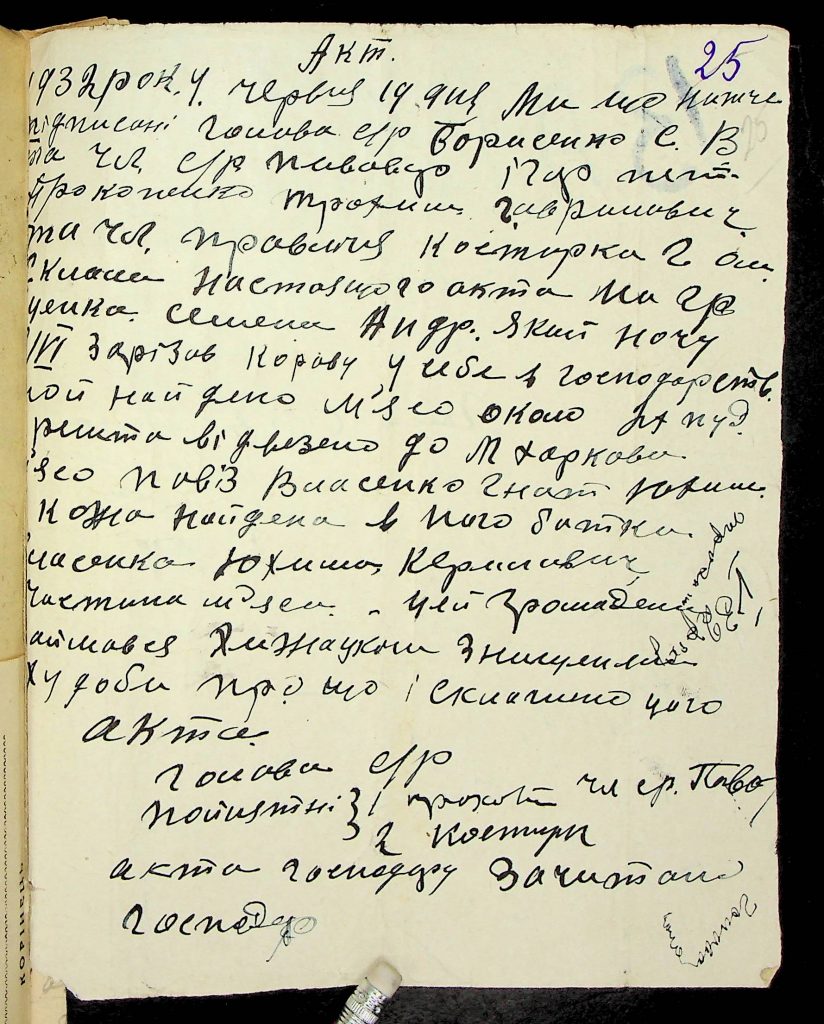 25
Акт.
1932 рок. У. червня 19 дня Ми що нижче
підписані Голова с/р Борисенко С. В
та чл, с/р Пивовар Ігор
Прокопенко Трохим Гаврилович
та чл. правління Костирка Г
Склали настоящого акта на гр
ценка. Семена Андр. який ночу
/VI зарізав корову у себе в господарств.
кой найдено м'ясо около пуд.
решта відвезено до М Харкова
ясо повіз Власенко Гнат Юхим.
кожа найдена в його батька
ласенка Юхима Керилович
частина м'яса. - цей громаденин
аймався хижацким знищенням
худоби про що і склагимо цого
акта.
Голова с/р
понятні } 1 Прокоп чл ср. Пиво
2 Костирк
акта господару зачитали
Господар